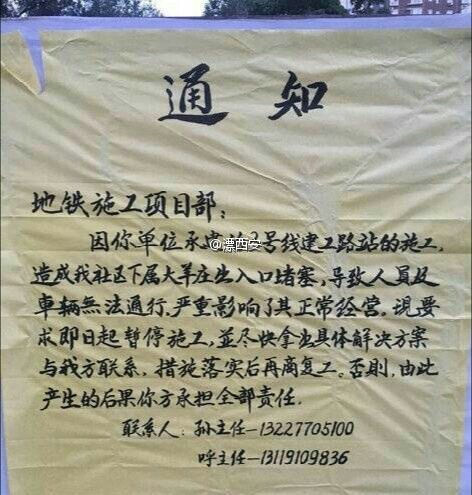 通知
地铁施工项目部：
因你单位承建的3号线建工路站的施工，
造成我社区下属大羊庄出入口堵塞，导致人员及
車辆無法通行，严重影响了其正常经营。現要
求即日起暂停施工，並尽快拿出具体解决方案
与我方联系，措施落实后再离复工。否则，由此
产生的后果你方承担全部责任.
联系人：孙主任-13227705100
呼主任-13119109836
@漂西安